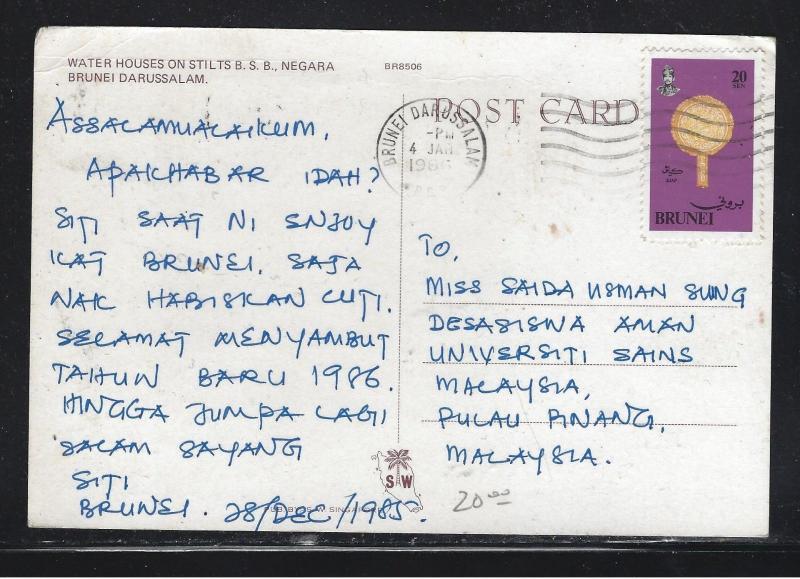 WATER HOUSES ON STILTS B. S. B., NEGARA
BRUNEI DARUSSALAM.
BR8506
POST CARD
BRUNEI DARUSSALAM
-PM
4 JAN
1986
20
SEN
بروني
BRUNEI
ASSALAMUALAIKUM,
APAKHABAR IDAH?
SITI SAAT NI ENJOY
KAT BRUNEI. SAJA
NAK HABISKAN CUTI.
SELAMAT MENYAMBUT
TAHUN BARU 1986.
HINGGA JUMPA LAGI
SALAM SAYANG
SITI
BRUNEI. 28/DEC/1985.
TO,
MISS SAIDA USMAN SUNG
DESASISWA AMAN
UNIVERSITI SAINS
MALAYSIA,
PULAU PINANG,
MALAYSIA.
S W
PUB. BY S. W. SINGAPORE
20.00